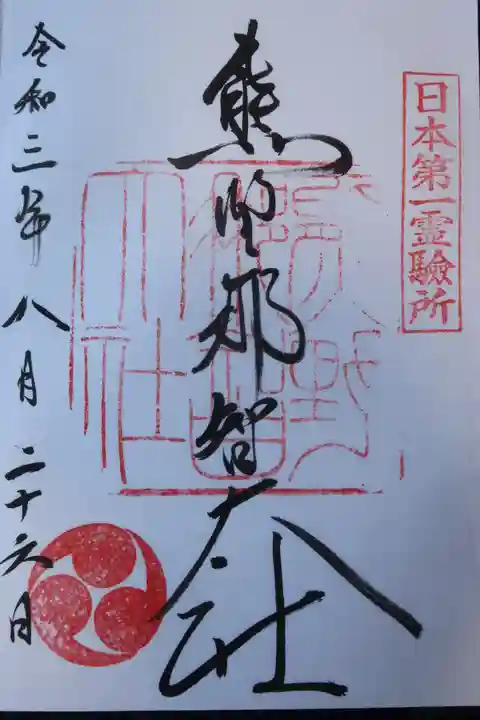 日本第一霊驗所
熊野那智大社
令和三年八月二十六日
熊野那智大社